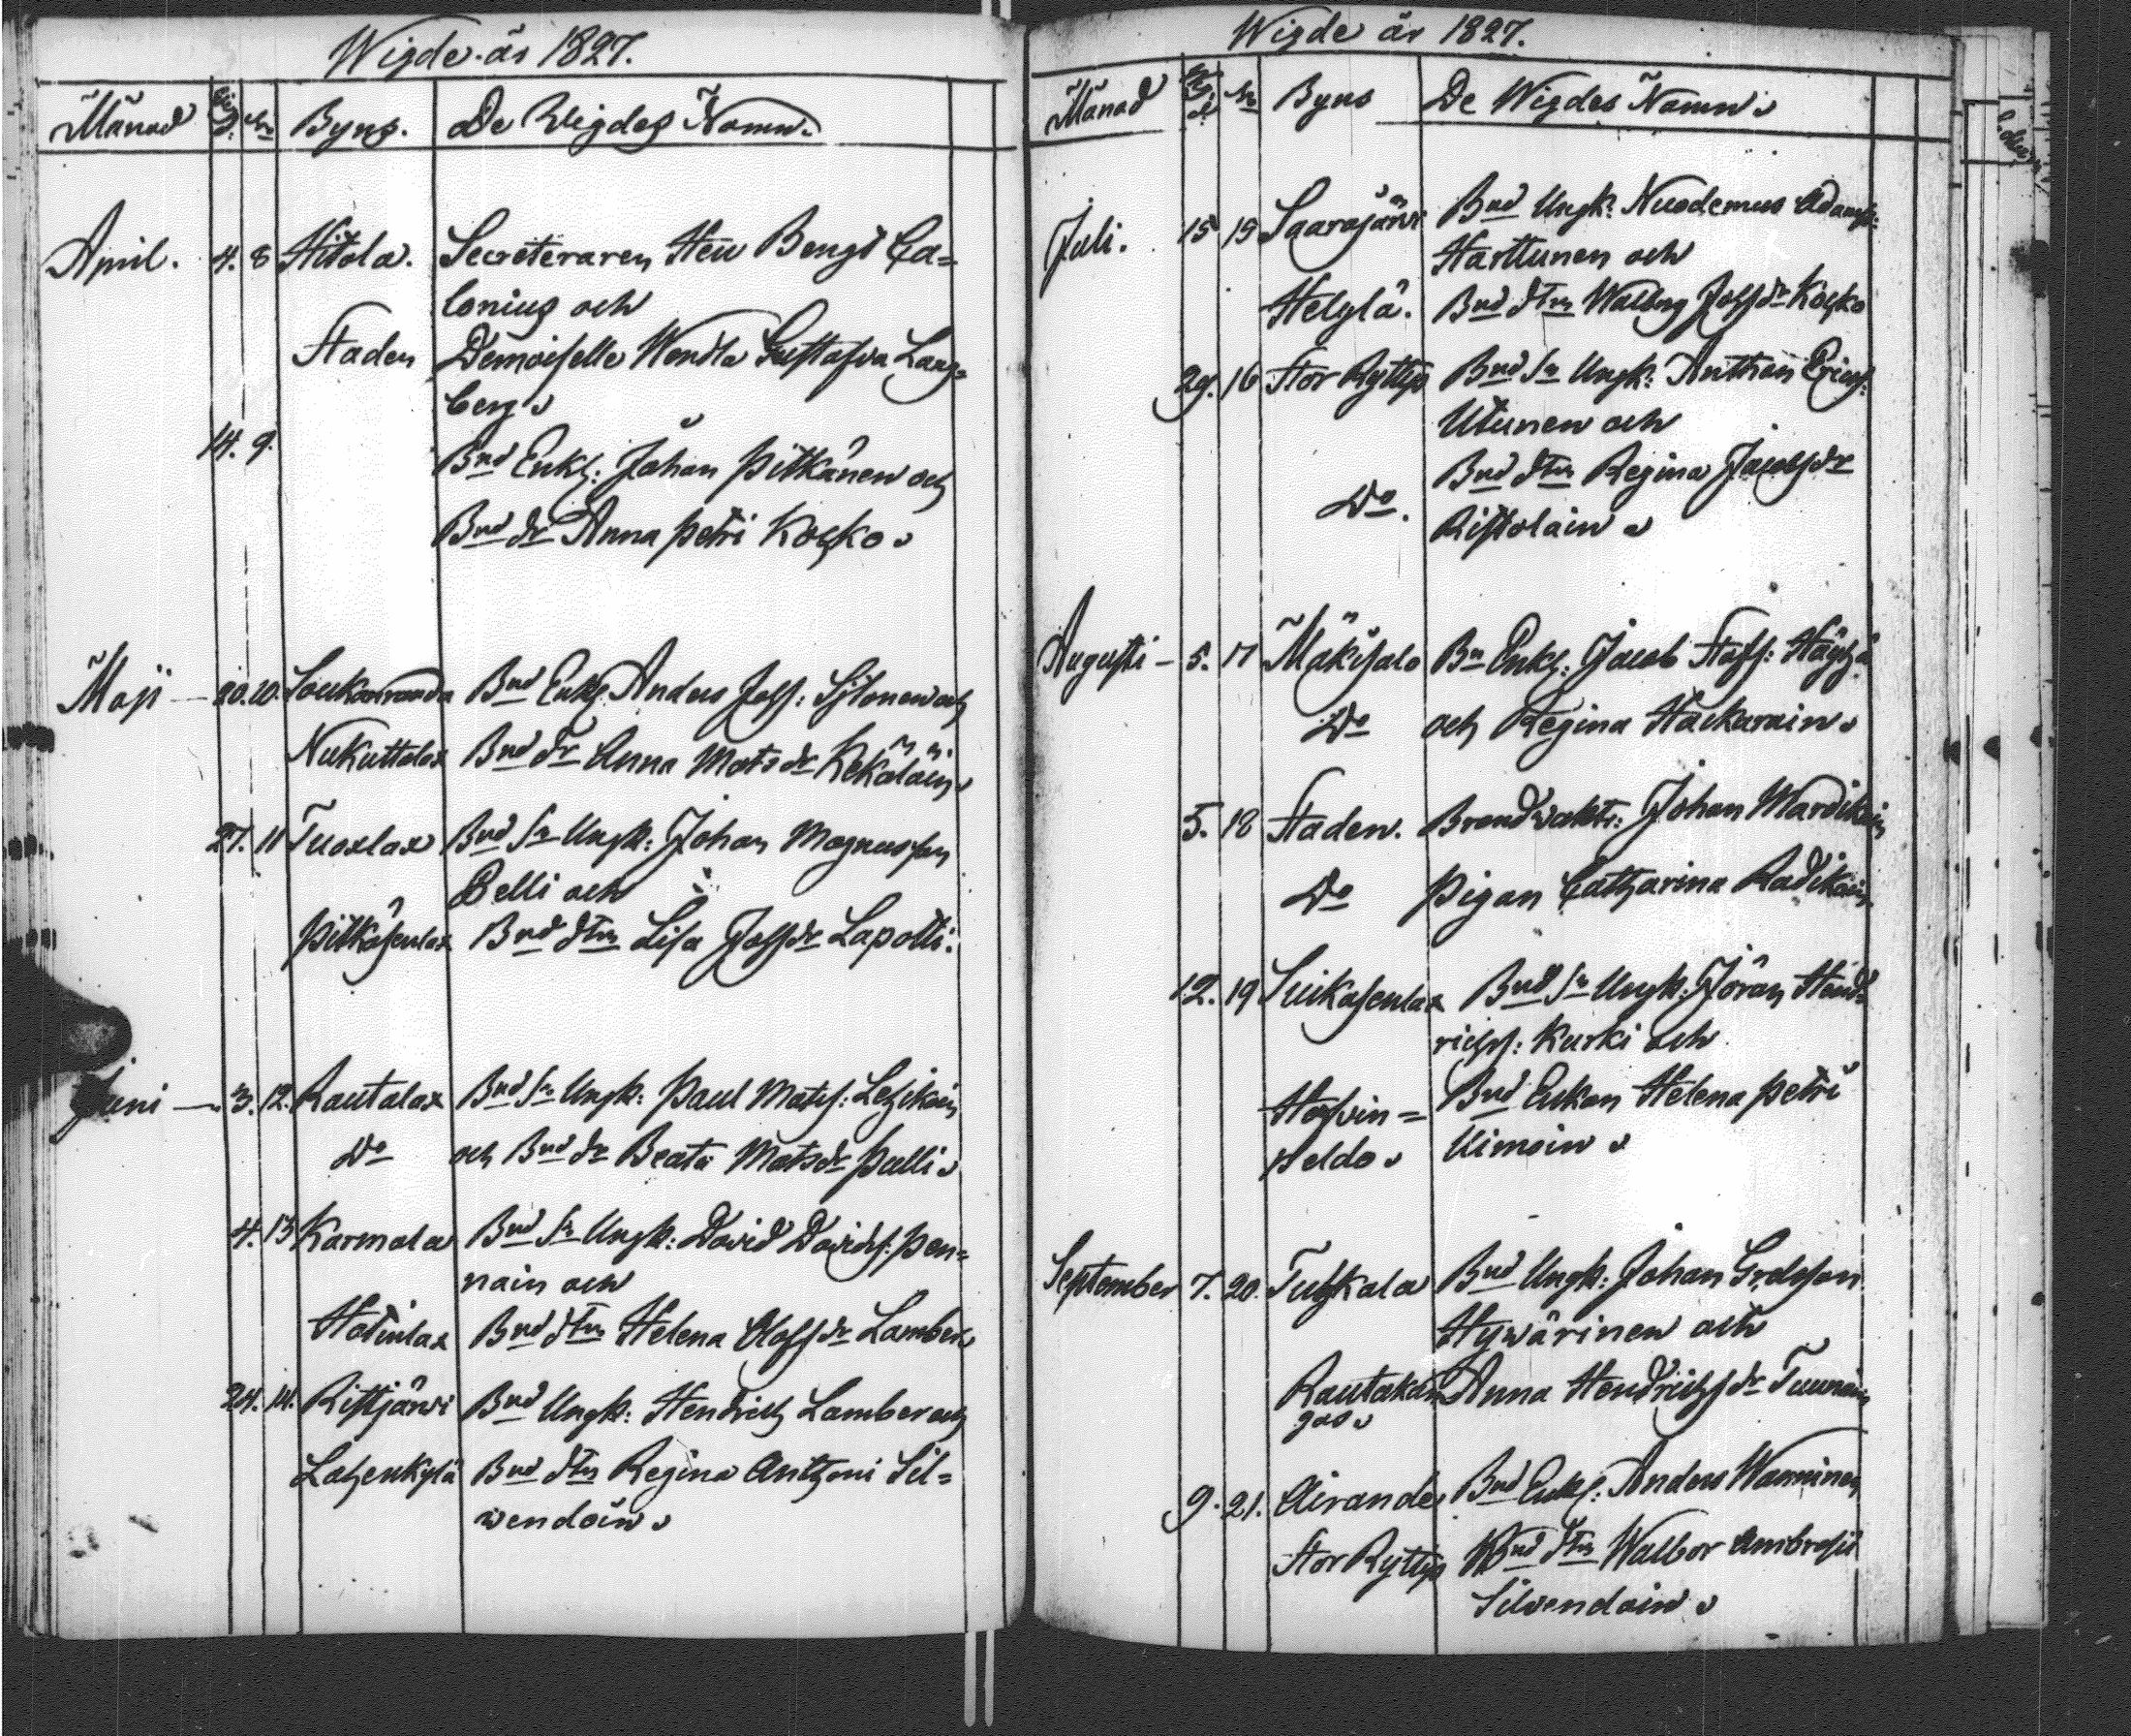 Wigde år 1827.
Månad Dag No Byns. De Wigdes Namn.
April. 4. 8 Hitola. Secreteraren Herr Bengt Ca=
lonius och
Staden Demoiselle Wendla Gustafva Lang=
berg
14. 9. Bnd Enkl: Johan Pitkänen och
Bnd dr Anna Petri Koško
Maji 20. 10. Bnd Enkl. Anders Jolss: Sjlonen och
Nukuttalax Bnd dr Anna Mats dr Kekäläin
27. 11 Tuoslax Bnd Sn Ungk: Johan Magnusson
Belli och
Pitkäsenlax Bnd dtrn Lisa Jolss dr Lapotti.
Juni 3. 12. Rautalax Bnd Sn Ungk: Paul Matss: Lehikoin
Do och Bnd dr Beata Mats dr Pulli
4. 13 Karmala Bnd Sn Ungk: David Davidss: Pen=
nain och
Hotinlax Bnd dtrn Helena Olofs dr Lamber
24. 14. Ristjärvi Bnd Ungk: Hendrich Lamber och
Lahenkylä Bnd dtrn Regina Anthoni Sil=
wendoin
Wigde år 1827.
Månad No Byns De Wigdes Namn
Juli. 15 15 Saarajärvi Bnd Ungk: Nicodemus Adamss:
Harttunen och
Helylä. Bnd dtrn Walborg Jolss dr Koško
29. 16 Stor Ryttyo Bnd Sn Ungk: Anthon Ericss:
Utunen och
Do. Bnd dtrn Regina Jacobs dr
Ristolain
Augusti 5. 17 Mäkisalo Bn Enkl: Jacob Staffs: Häyhä
Do och Regina Hackarain
5. 18 Staden. Brandwakt: Johan Wardikain
Do Pigan Catharina Radikain
12. 19 Suikasenlax Bnd Sn Ungk: Jöran Hend=
richss: Kurki och
Hofsin=
peldo Bnd Enkan Helena Petri
Uimoin
September 7. 20. Tuhkala Bnd Ungk: Johan Grelsson
Hyvärinen och
Rautakan
gas Anna Hendrichs dr Tuunain
9. 21. Airande Bnd Enkl: Anders Wanninen
Stor Ryttyo Bnd dtrn Walbor Ambrosii
Silvendoin